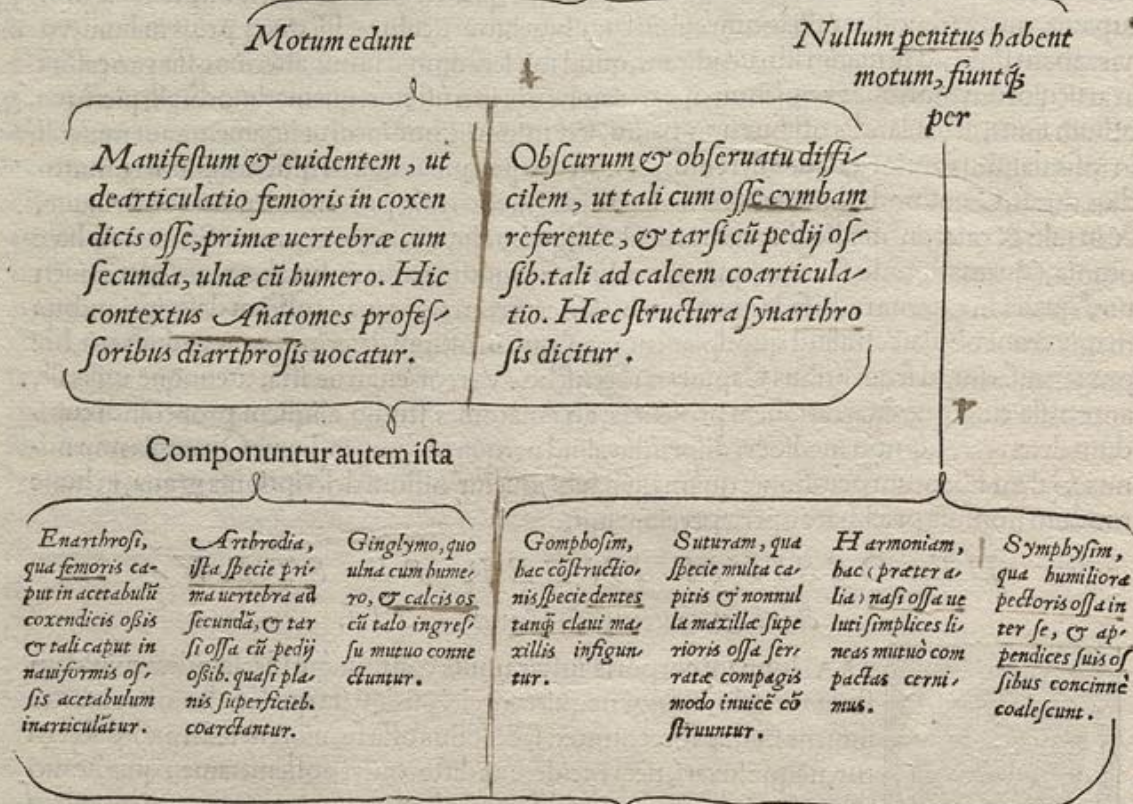 Motum edunt
Nullum penitus habent
motum, fiuntq́;
per
Manifestum & euidentem, ut
dearticulatio femoris in coxen
dicis osse, primæ uertebræ cum
secunda, ulnæ cū humero. Hic
contextus Anatomes profes-
soribus diarthrosis uocatur.
Obscurum & obseruatu diffi-
cilem, ut tali cum osse cymbam
referente, & tarsi cū pedij os-
sib. tali ad calcem coarticula-
tio. Hæc structura synarthro
sis dicitur.
Componuntur autem ista
Enarthrosi,
qua femoris ca-
put in acetabulū
coxendicis oßis
& tali caput in
nauiformis os-
sis acetabulum
inarticulātur.
Arthrodia,
ista specie pri-
ma uertebra ad
secundā, & tar
si ossa cū pedij
oßib. quasi pla-
nis superficieb.
coarctantur.
Ginglymo, quo
ulna cum hume-
ro, & calcis os
cū talo ingres-
su mutuo conne
ctuntur.
Gomphosim,
hac cōstructio-
nis specie dentes
tanq̃ claui ma-
xillis infigun-
tur.
Suturam, qua
specie multa ca-
pitis & nonnul
la maxillæ supe
rioris ossa ser-
ratæ compagis
modo inuicē cō
struuntur.
Harmoniam,
hac (præter a-
lia) nasi ossa ue
luti simplices li-
neas mutuò com
pactas cerni-
mus.
Symphysim,
qua humiliora
pectoris ossa in
ter se, & ap-
pendices suis os
sibus concinnè
coalescunt.